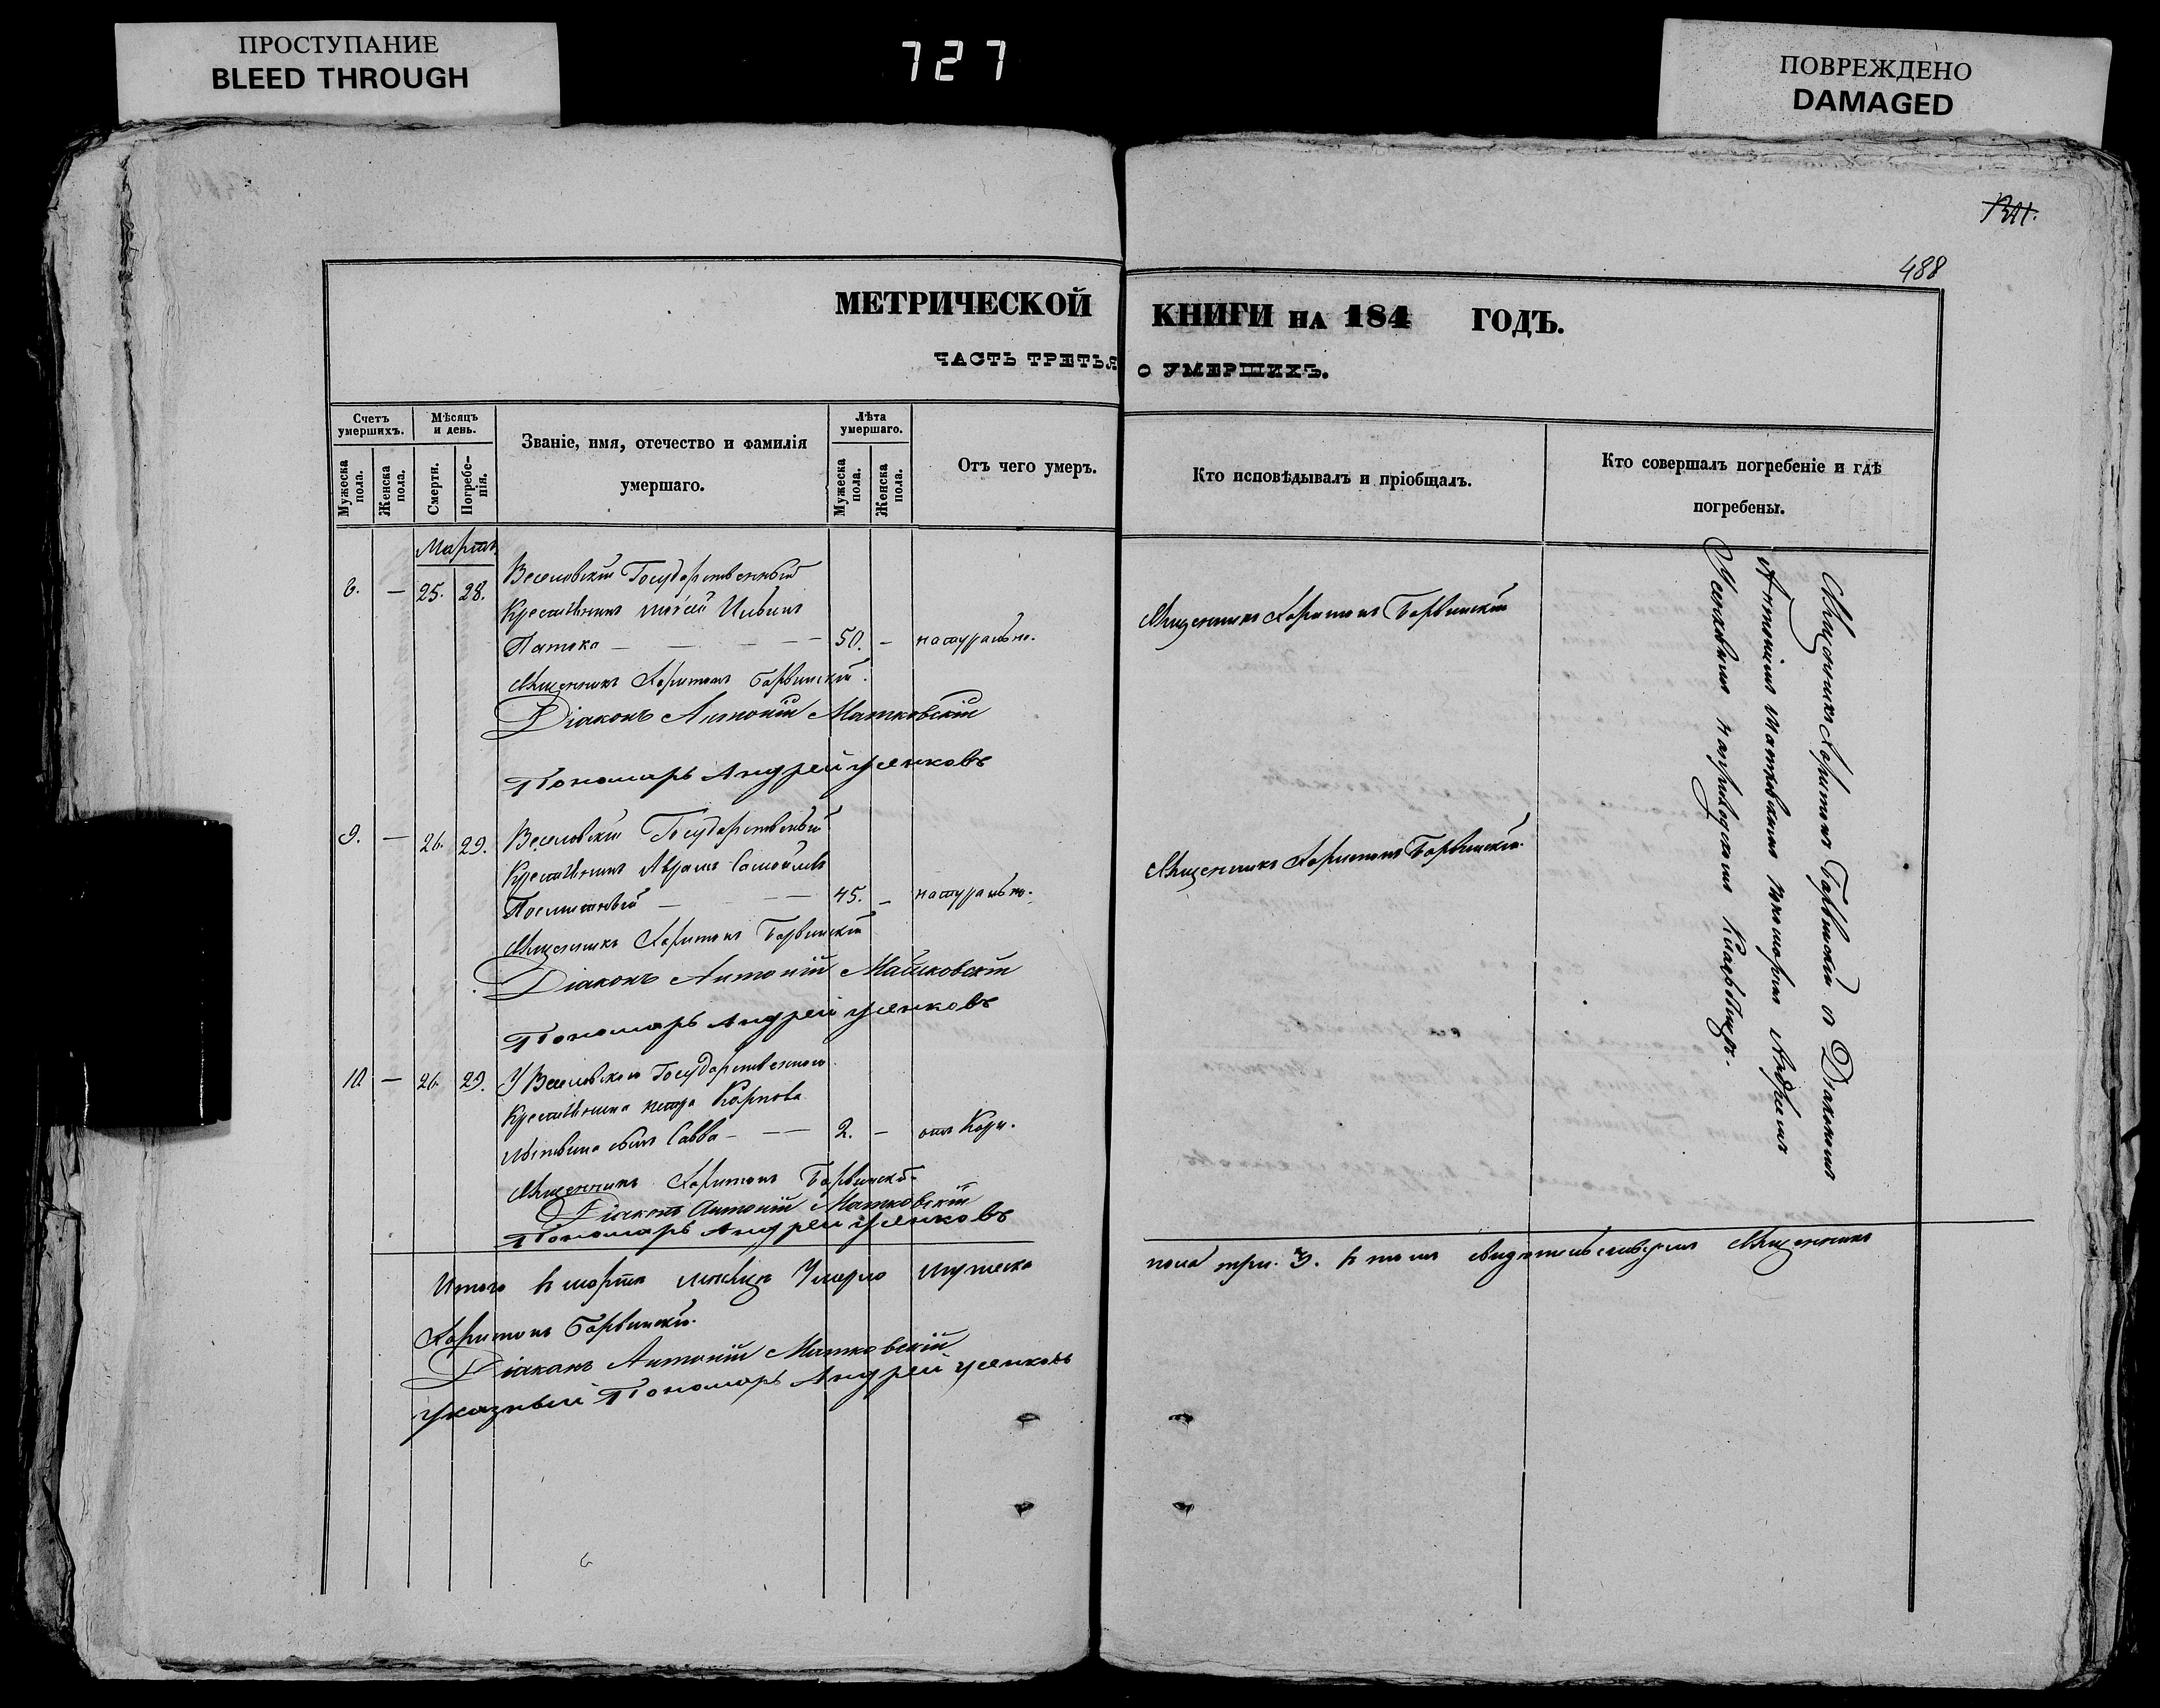 ПРОСТУПАНИЕ
BLEED THROUGH
727
ПОВРЕЖДЕНО
DAMAGED
488
МЕТРИЧЕСКОЙ КНИГИ НА 184 ГОДЪ.
ЧАСТЬ ТРЕТЬЯ О УМЕРШИХЪ.
Счетъ умершихъ.
Мѣсяцъ и день.
Званіе, имя, отечество и фамилія умершаго.
Лѣта умершаго.
Отъ чего умеръ.
Кто исповѣдывалъ и пріобщалъ.
Кто совершалъ погребеніе и гдѣ погребены.
Мужеска пола.
Женска пола.
Смерти.
Погребенія.
Мужеска пола.
Женска пола.
Мартъ
— 25. 28. Веселовскій Государственный
Крестьянинъ Ильинъ
50. — натурально.
Священникъ Харитонъ Барвинскій
Священникъ Харитонъ Барвинскій.
Діаконъ Антоній Матковскій
Пономарь Андрей Усенковъ
9. — 26. 29. Веселовскій Государственный
Крестьянинъ Аврамъ Самойловъ
45. — натурально.
Священникъ Харитонъ Барвинскій.
Священникъ Харитонъ Барвинскій
Діаконъ Антоній Матковскій
Пономарь Андрей Усенковъ
10 — 26. 29. У Веселовскаго Государственнаго
Крестьянина Петра Карпова
сынъ Савва — 2. — отъ Кори.
Священникъ Харитонъ Барвинскій
Діаконъ Антоній Матковскій
Пономарь Андрей Усенковъ
Священникъ Харитонъ Барвинскій съ Діакономъ
Антоніемъ Матковскимъ пономаремъ Андреемъ
Усенковымъ на приходскомъ Кладбищѣ.
Итого в марта месяце Умерло мужеска
пола три. 3. в томъ свидетельствуемъ Священникъ
Харитонъ Барвинскій.
Діаконъ Антоній Матковскій
Указный Пономарь Андрей Усенковъ